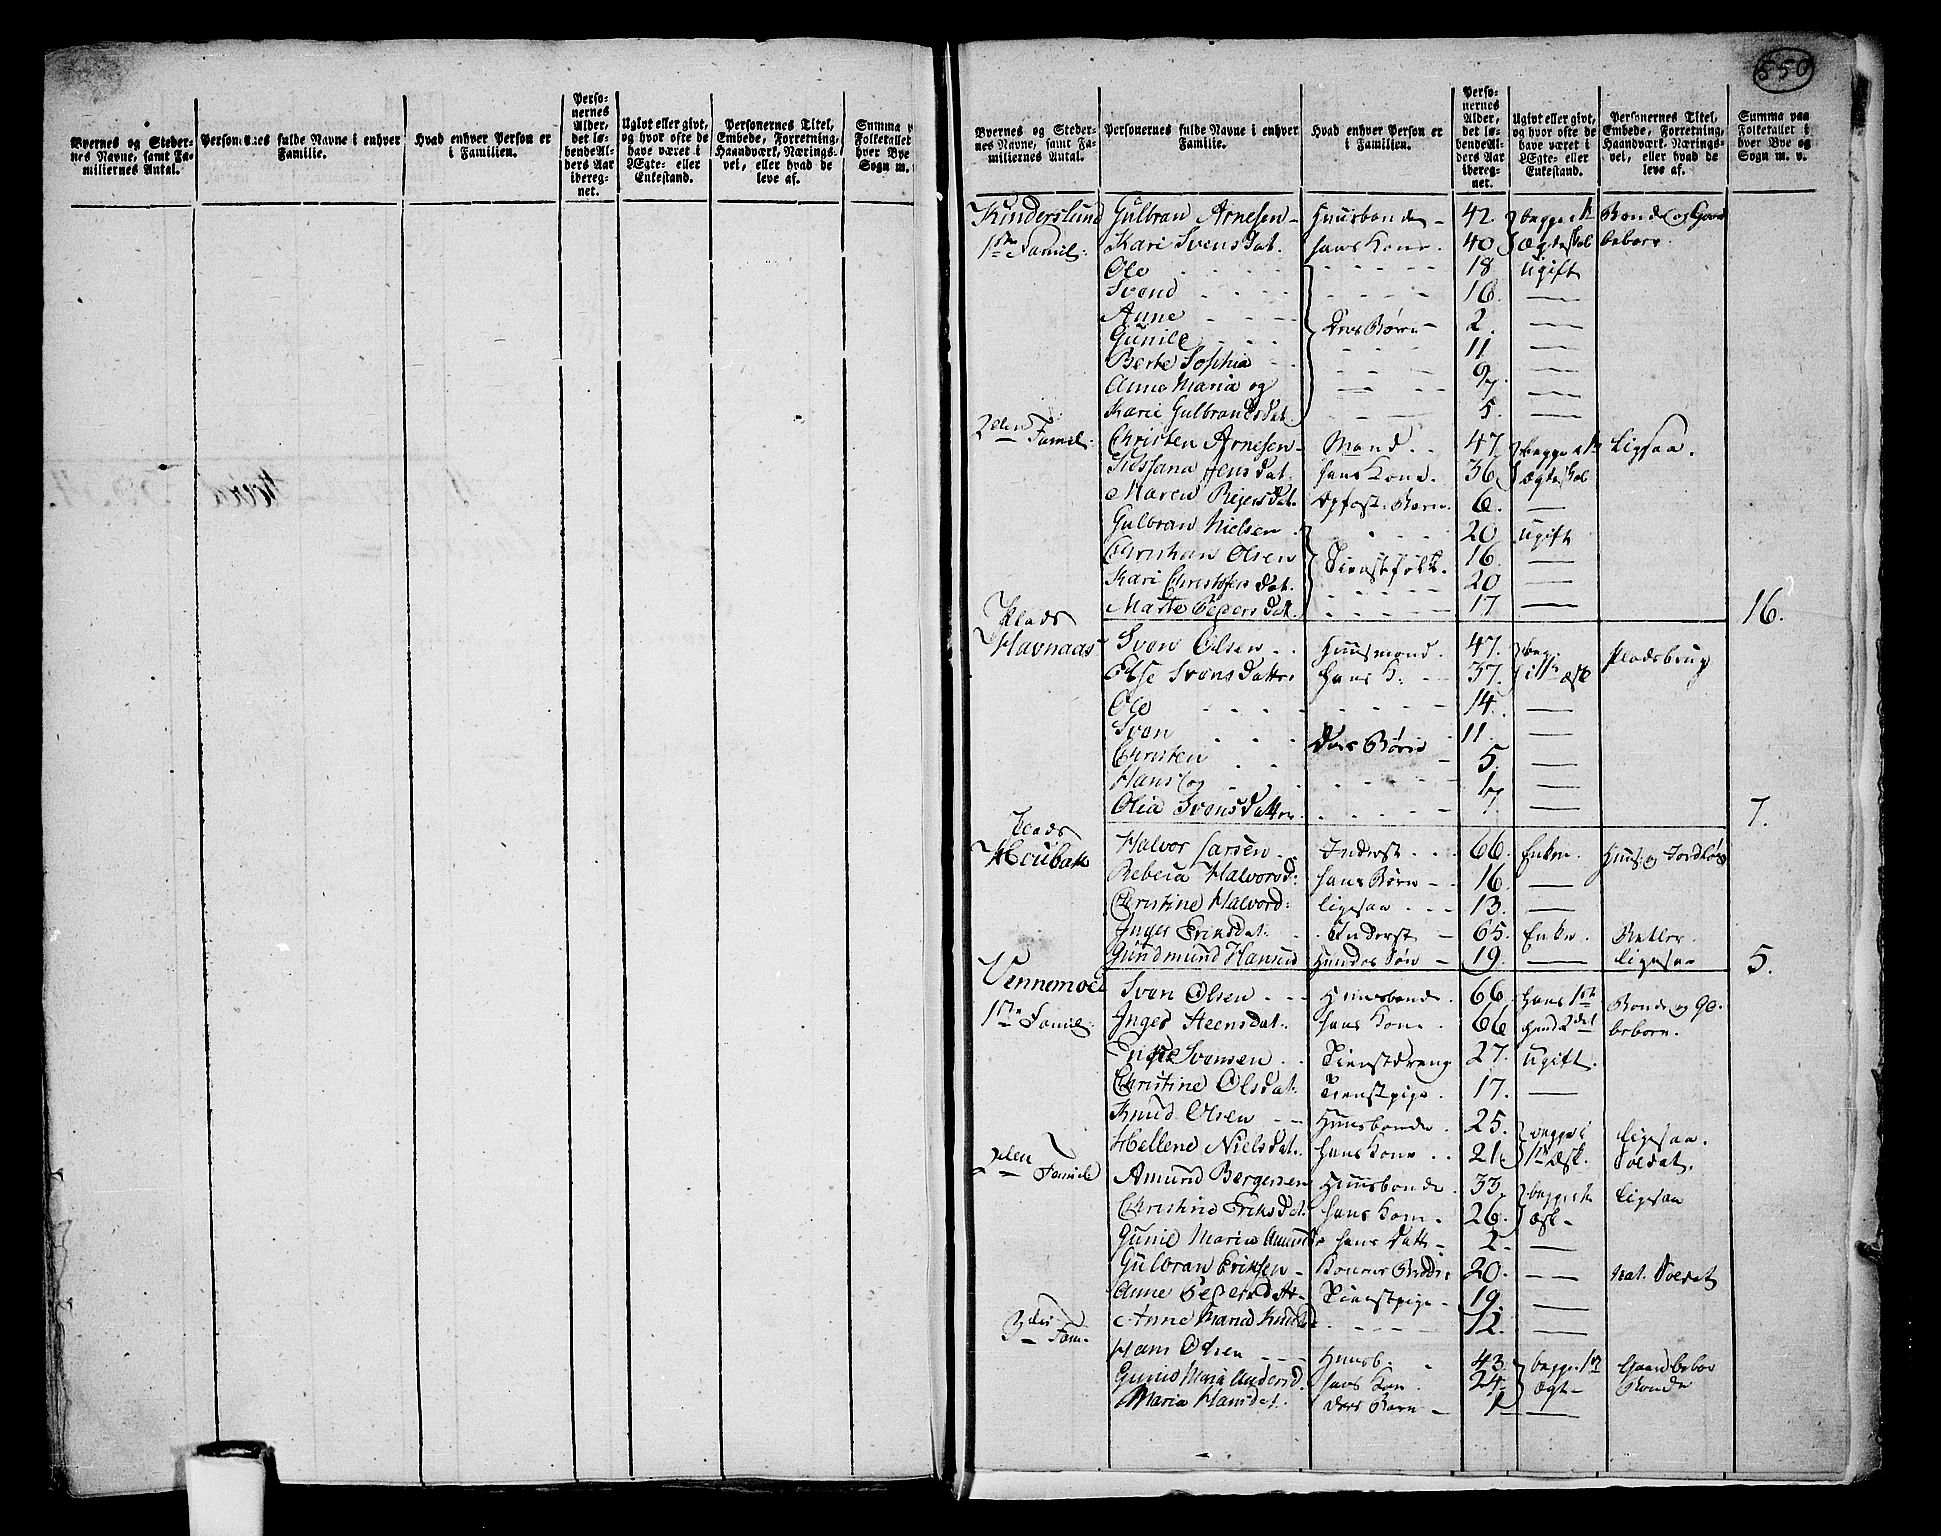 Byernes og Steder-
nes Navne, samt Fa-
miliernes Antal.
Personernes fulde Navne i enhver
Familie.
Hvad enhver Person er
i Familien.
Perso-
nernes
Alder,
det lø-
bendeAl-
ders Aar
ibereg-
net.
Ugivt eller givt,
og hvor ofte de
have været i
Ægte- eller
Enkestand.
Personernes Titel,
Embede, Forretning,
Haandværk, Nærings-
vei, eller hvad de
leve af.
Summa
Folketallet
hver Bye
Sogn m.
550
Byernes og Steder-
nes Navne, samt Fa-
miliernes Antal.
Personernes fulde Navne i enhver
Familie.
Hvad enhver Person er
i Familien.
Perso-
nernes
Alder,
det lø-
bendeAl-
ders Aar
ibereg-
net.
Ugivt eller givt,
og hvor ofte de
have været i
Ægte- eller
Enkestand.
Personernes Titel,
Embede, Forretning,
Haandværk, Nærings-
vei, eller hvad de
leve af.
Summa paa
Folketallet i
hver Bye og
Sogn m. v.
Kinderslund Gulbran Arnesen Huusbonde 42. begge 1te Bonde og
1ste Famil: Kari Svensdat. hans Kone. 40 Ægteskab beboer
Ole 18 ugift
Svend 16.
Anne Ders Børn 2.
Gunile 11
Berte Sophia 9
Anne Maria og 7
Karie Gulbrandsdat. 5.
2den Famil. Christen Arnesen Mand 47. begge 1te Ligesaa.
Jensdat. hans Kone. 36 Ægteskab
Maren Reiersdat. Opfost. Barn 6.
Gulbran Nielsen 20 ugift
Christian Olsen Tienstefolk. 16.
Kari Christophersdat. 20
Marte Pedersdat. 17 16.
Plads
Havnaas Sven Olsen Huusmand. 47. beg. Pladsbrug
Else Svensdatter hans K. 37. i 1te æsk
Ole 14.
Sven Ders Børn 11.
Christen 5.
Hans og
Olia Svensdatter 7.
Plads
Houbak Halvor Larsen Inderst 66. Enkm. Huus og
Rebeca Halvorsd: hans Børn 16.
Christine Halvord: ligesaa 13.
Inger Eriksdat. Inderst 65. Enke. Betler.
Gundmund Hansen Hendes Søn 19. ligesaa 5.
Vennemoe Sven Olsen Huusbonde 66. hans 1ste Bonde og
1ste Famil: Inger Steensdat. hans Kone 66 hend. 2det beboer.
Svensen Tienstdreng 27. ugift.
Christine Olsdat. Tienstpige. 17.
Knud Olsen Huusbonde. 25. begge i Ligesaa.
Hellene Nielsdat. hans Kone 21. 1te æsk. Soldat.
2den Famile Amund Bergersen Huusbonde 33. begge 1te Ligesaa
Christine Eriksdat. hans Kone 26. æsk
Gunil Maria hans Datt 2
Gulbran Eriksen Konens Brod: 20. Nat. Soldat
Anne Pedersdatt Tienstpige 19.
Anne Maria 12.
3die Fam. Hans Olsen Huusb. 43. begge 1te Gaardbeboe
Gunil Maria Andersd. hans Kon 24. Ægt Bonde
Maria Hansdat. ders Barn 1